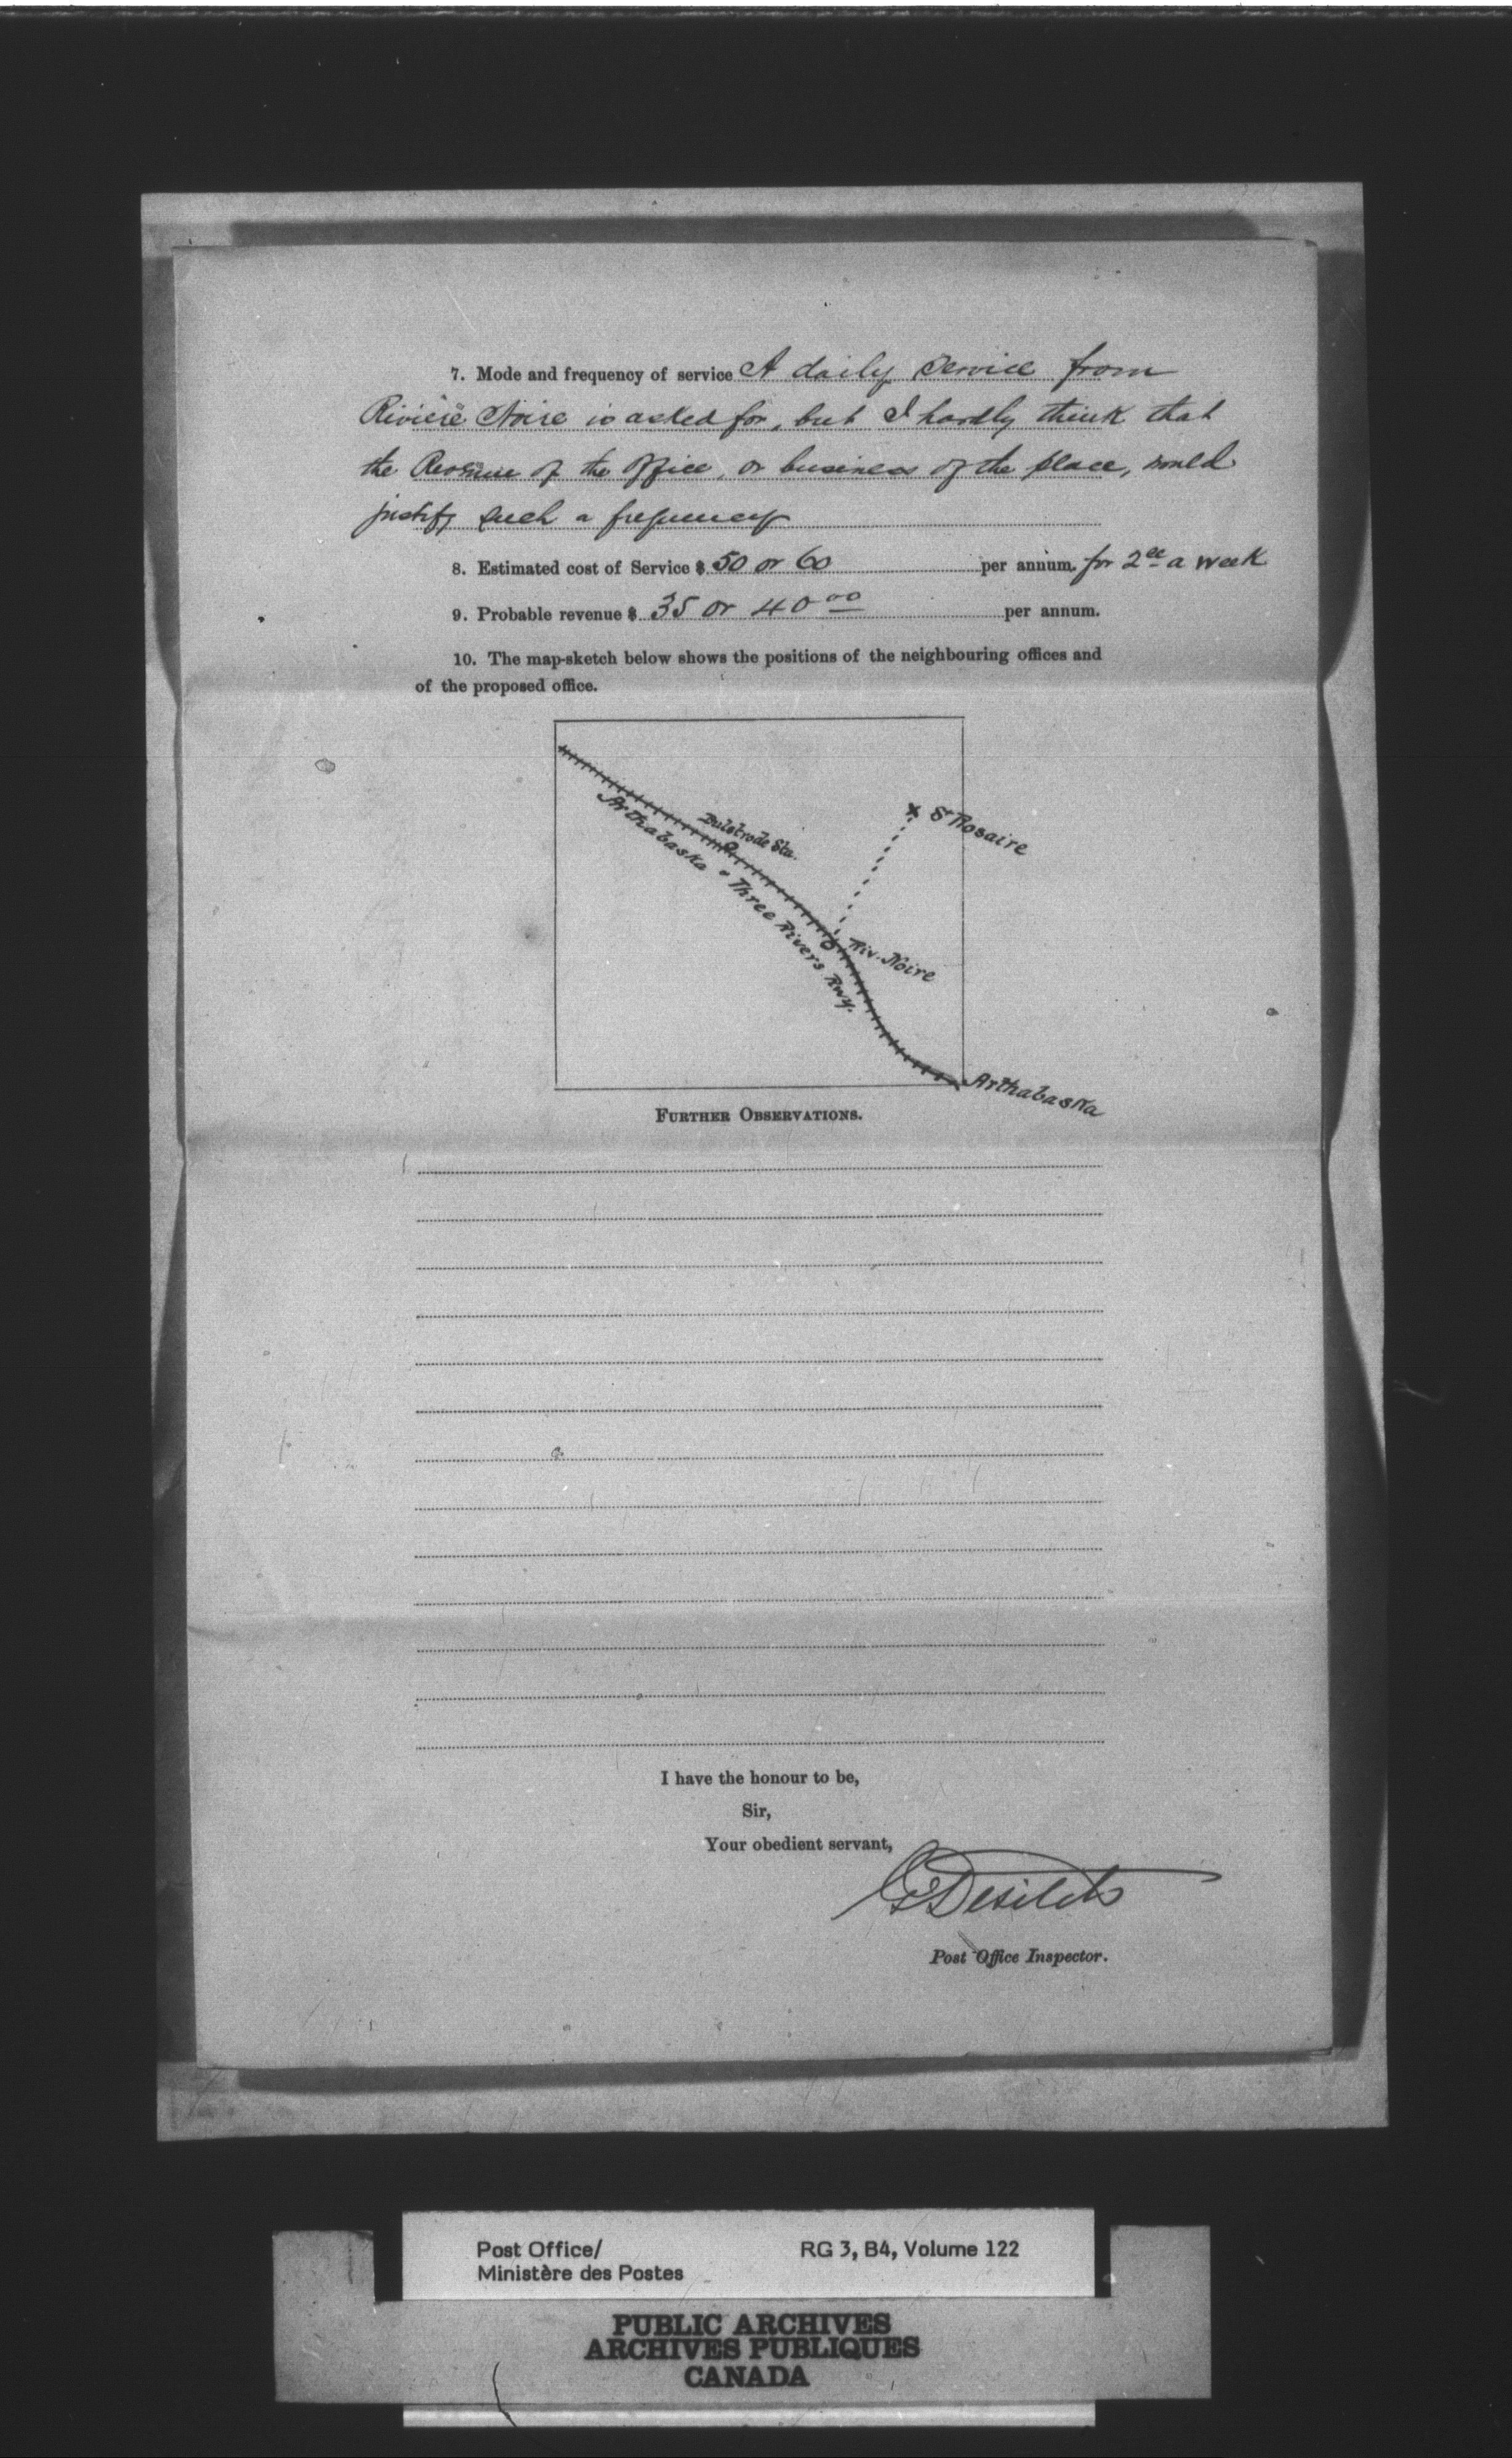 7. Mode and frequency of service A daily service from
Rivière Noire is asked for, but I hardly think that
the Revenue of the office, or business of the place, would
justify such a frequency
8. Estimated cost of Service $ 50 or 60 per annum. for 2ce a week
9. Probable revenue $ 35 or 40 00 per annum.
10. The map-sketch below shows the positions of the neighbouring offices and
of the proposed office.
Bulstrode Sta.
St Rosaire
Arthabaska & Three Rivers Rwy.
Riv. Noire
Arthabaska
FURTHER OBSERVATIONS.
I have the honour to be,
Sir,
Your obedient servant,
Desilets
Post Office Inspector.
Post Office/ RG 3, B4, Volume 122
Ministère des Postes
PUBLIC ARCHIVES
ARCHIVES PUBLIQUES
CANADA